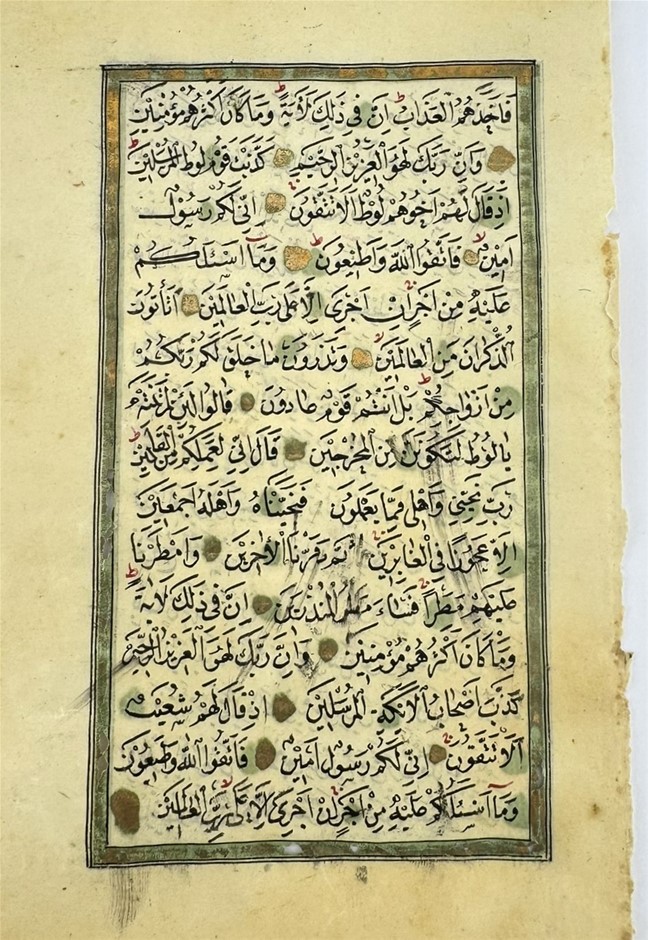 فَاَخَذَهُمُ الْعَذَابُ اِنَّ فِي ذٰلِكَ لَاٰيَةً وَمَا كَانَ اَكْثَرُهُمْ مُؤْمِنِينَ
وَاِنَّ رَبَّكَ لَهُوَ الْعَزِيزُ الرَّحِيمُ كَذَّبَتْ قَوْمُ لُوطٍ الْمُرْسَلِينَ
اِذْ قَالَ لَهُمْ اَخُوهُمْ لُوطٌ اَلَا تَتَّقُونَ اِنِّي لَكُمْ رَسُولٌ
اَمِينٌ فَاتَّقُوا اللّٰهَ وَاَطِيعُونِ وَمَا اَسْئَلُكُمْ
عَلَيْهِ مِنْ اَجْرٍ اِنْ اَجْرِيَ اِلَّا عَلٰى رَبِّ الْعَالَمِينَ اَتَأْتُونَ
الذُّكْرَانَ مِنَ الْعَالَمِينَ وَتَذَرُونَ مَا خَلَقَ لَكُمْ رَبُّكُمْ
مِنْ اَزْوَاجِكُمْ بَلْ اَنْتُمْ قَوْمٌ عَادُونَ قَالُوا لَئِنْ لَمْ تَنْتَهِ
يَا لُوطُ لَتَكُونَنَّ مِنَ الْمُخْرَجِينَ قَالَ اِنِّي لِعَمَلِكُمْ مِنَ الْقَالِينَ
رَبِّ نَجِّنِي وَاَهْلِي مِمَّا يَعْمَلُونَ فَنَجَّيْنَاهُ وَاَهْلَهُ اَجْمَعِينَ
اِلَّا عَجُوزًا فِي الْغَابِرِينَ ثُمَّ دَمَّرْنَا الْاٰخَرِينَ وَاَمْطَرْنَا
عَلَيْهِمْ مَطَرًا فَسَاءَ مَطَرُ الْمُنْذَرِينَ اِنَّ فِي ذٰلِكَ لَاٰيَةً
وَمَا كَانَ اَكْثَرُهُمْ مُؤْمِنِينَ وَاِنَّ رَبَّكَ لَهُوَ الْعَزِيزُ الرَّحِيمُ
كَذَّبَ اَصْحَابُ الْاَيْكَةِ الْمُرْسَلِينَ اِذْ قَالَ لَهُمْ شُعَيْبٌ
اَلَا تَتَّقُونَ اِنِّي لَكُمْ رَسُولٌ اَمِينٌ فَاتَّقُوا اللّٰهَ وَاَطِيعُونِ
وَمَا اَسْئَلُكُمْ عَلَيْهِ مِنْ اَجْرٍ اِنْ اَجْرِيَ اِلَّا عَلٰى رَبِّ الْعَالَمِينَ